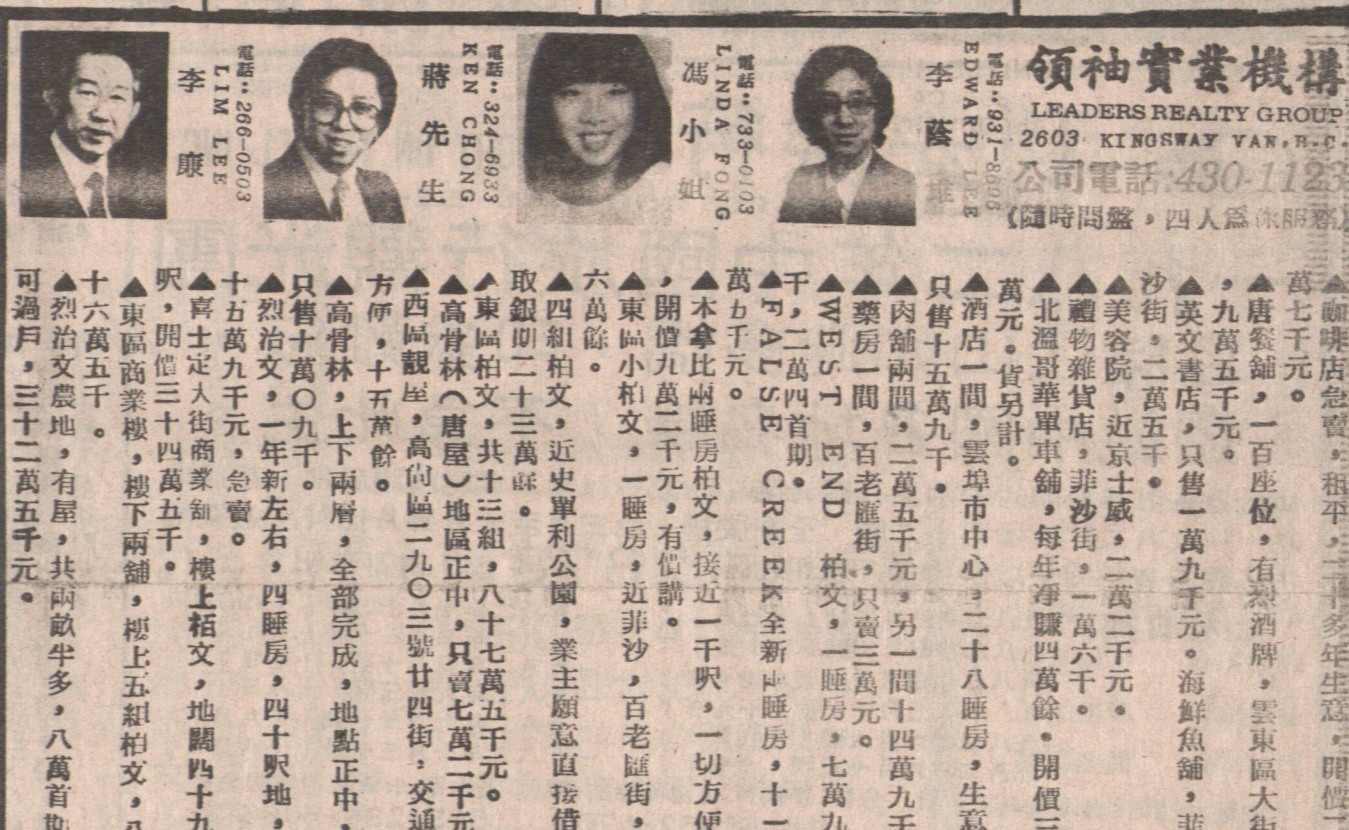 領袖實業機構
LEADERS REALTY GROUP
2603 KINGSWAY VAN, B.C.
公司電話:430-1123
【隨時問盤，四人為你服務】
電話：931-8606
EDWARD LEE
李蔭
電話：733-0103
LINDA FONG
馮小姐
電話：324-6933
KEN CHONG
蔣先生
電話：266-0503
LIM LEE
李康
▲咖啡店急賣，租平，二十多年生意，開價二
萬七千元。
▲唐餐舖，一百座位，有烈酒牌，雲東區大街
，九萬五千元。
▲英文書店，只售一萬九千元。海鮮魚舖，菲
沙街，二萬五千。
▲美容院，近京士威，二萬二千元。
▲禮物雜貨店，菲沙街，一萬六千。
▲北溫哥華單車舖，每年淨賺四萬餘。開價三
萬元。貨另計。
▲酒店一間，雲埠市中心，二十八睡房，生意
只售十五萬九千。
▲肉舖兩間，二萬五千元，另一間十四萬九千
▲藥房一間，百老匯街，只賣三萬元。
▲WEST END 柏文，一睡房，七萬九
千，二萬四首期。
▲FALSE CREEK全新睡房，十一
萬五千元。
▲本拿比兩睡房柏文，接近一千呎，一切方便
，開價九萬二千元，有價講。
▲東區小柏文，一睡房，近菲沙，百老匯街，
六萬餘。
▲四組柏文，近史單利公園，業主願意直接借
取銀期二十三萬餘。
▲東區柏文，共十三組，八十七萬五千元。
▲高骨林（唐屋）地區正中，只賣七萬二千元
▲西區靚屋，高尚區二九〇三號廿四街，交通
方便，十五萬餘。
▲高骨林，上下兩層，全部完成，地點正中，
只售十萬〇九千。
▲烈治文，一年新左右，四睡房，四十呎地，
十五萬九千元，急賣。
▲喜士定大街商業舖，樓上栢文，地闊四十九
呎，開價三十四萬五千。
▲東區商業樓，樓下兩舖，樓上五組柏文，八
十六萬五千。
▲烈治文農地，有屋，共兩畝半多，八萬首期
可過戶，三十二萬五千元。